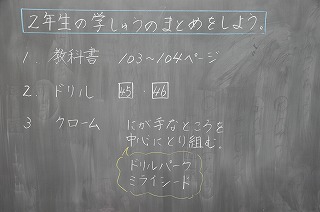 2年生の学しゅうのまとめをしよう。
1. 教科書 103~104ページ
2. ドリル 45・46
3 クローム にが手なところを
中心にとり組む。
ドリルパーク
ミライシード